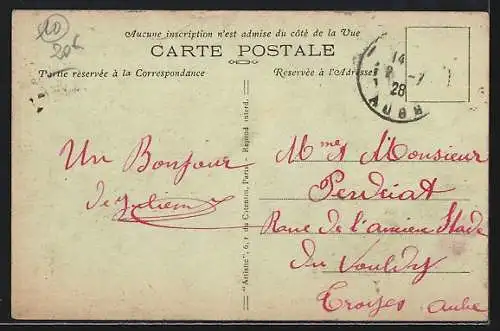 10
20
Aucune inscription n'est admise du côté de la Vue
CARTE POSTALE
Partie réservée à la Correspondance
Réservée à l'Adresse
14
-7
28
AUBE
Un Bonjour
de Julien
"Artistic", 6, r du Cotentin, Paris - Reprod interd.
Mme & Monsieur
Perdriat
Rue de l'ancien Stade
du Vouldy
Troyes Aube